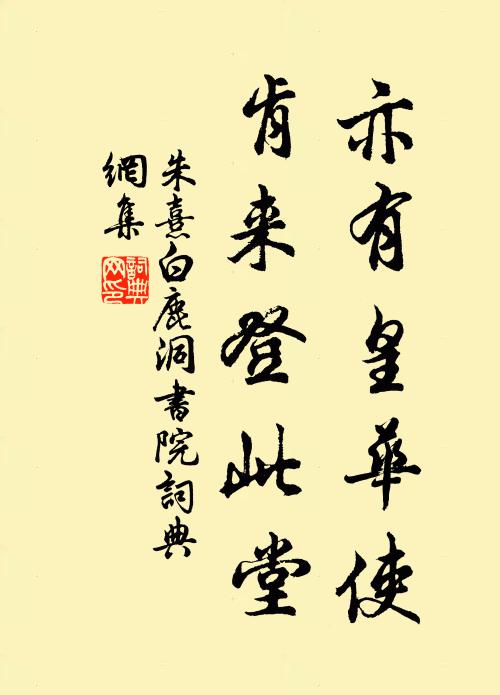 亦有皇華使
肯来登此堂
朱熹白鹿洞書院詞典
網集
詞典
网印